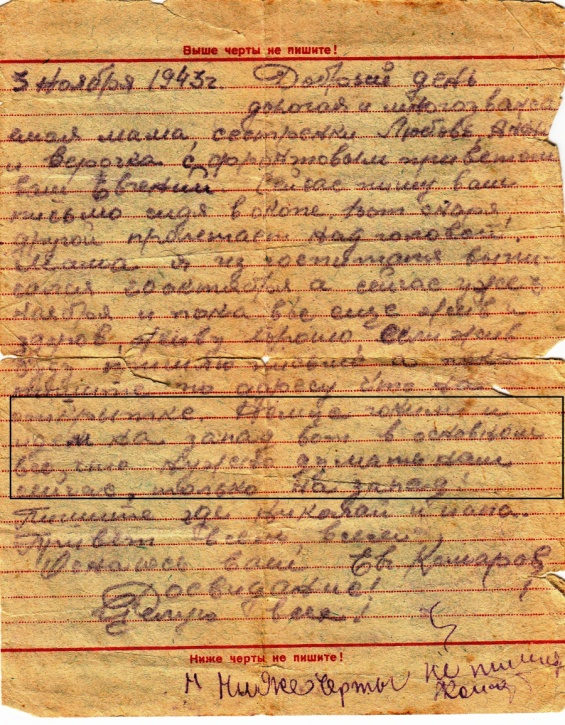 Выше черты не пишите!
3 Ноября 1943г Добрый день
дорогая и многоуважа
емая мама, сестренки Любовь
и Верочка, с фронтовым приветом
ваш Евгений Сейчас пишу вам
письмо сидя в окопе, вот снаряд
другой пролетает над головой!
Мама я из госпиталя выпи
сался 20 октября а сейчас уже 3
ноября и пока все еще жив и
здоров, живу хорошо если жив
буду пришлю а пока
пишите по адресу что на
открытке. Немца гоним и
идем на запад вот в основном
все что нужно думать нам
сейчас, только на запад!
Пишите где Николай и папа.
Привет всем всем,
Остаюсь ваш Ев Комаров
Досвидание! !
Целую всех!
Ниже черты не пишите!
Ниже черты не пишу